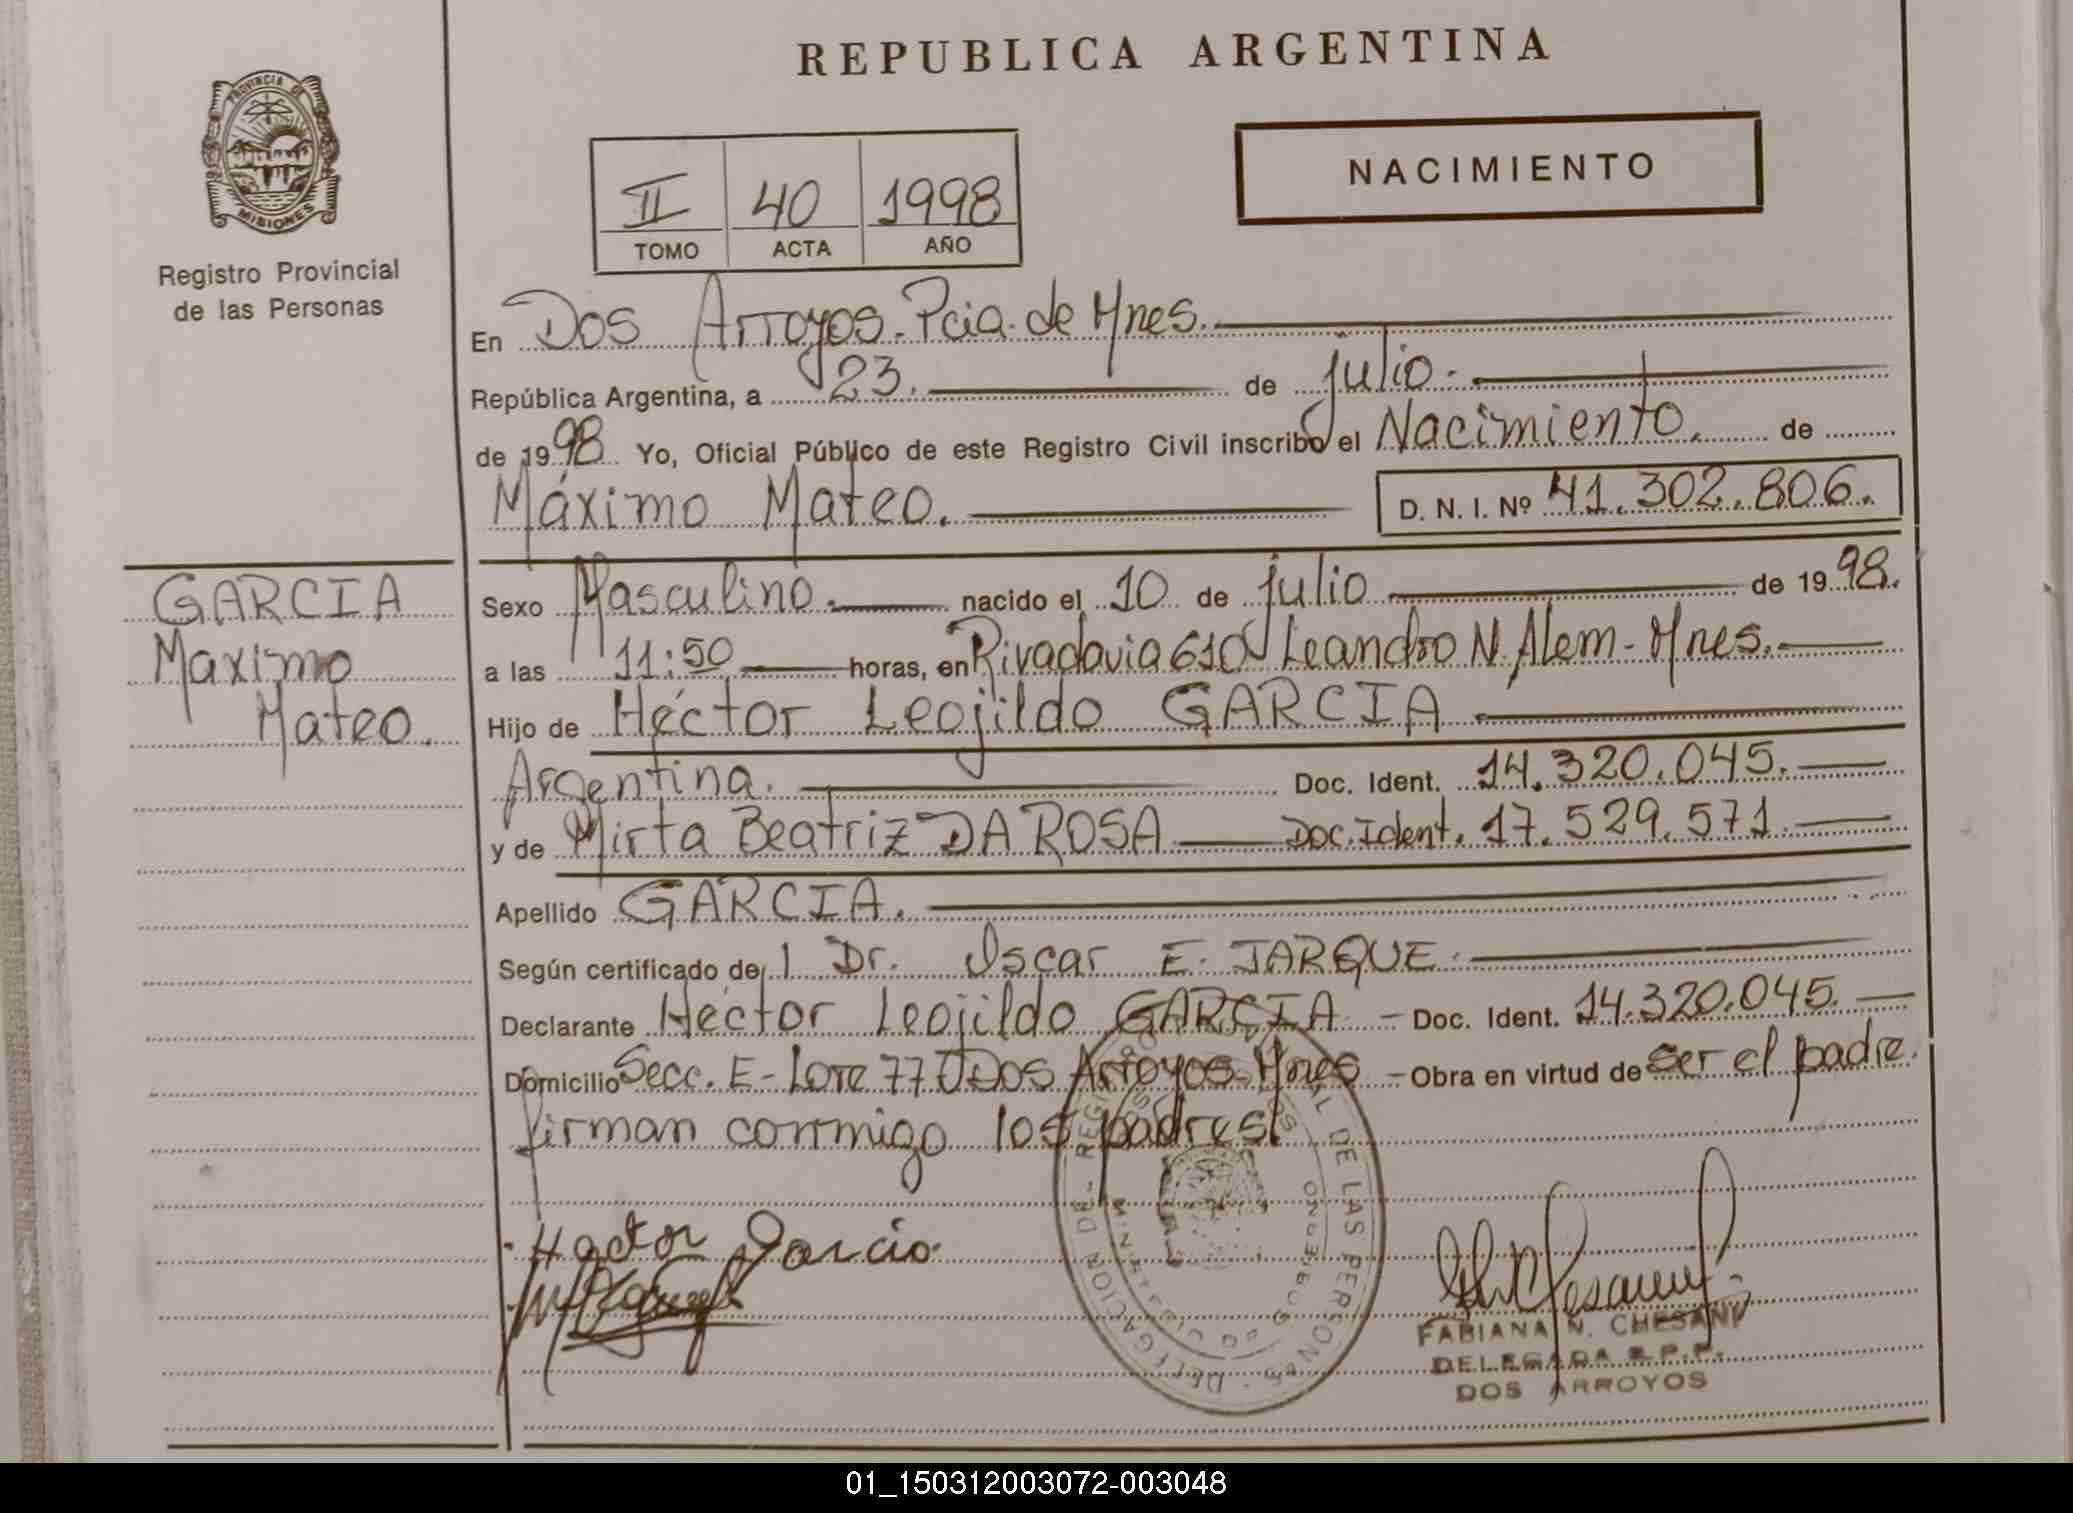 REPUBLICA ARGENTINA
PROVINCIA DE
MISIONES
Registro Provincial
de las Personas
NACIMIENTO
II 40 1998
TOMO ACTA AÑO
En Dos Arroyos. Pcia. de Mnes.
República Argentina, a 23. de julio.
de 1998 Yo, Oficial Público de este Registro Civil inscribo el Nacimiento. de
Máximo Mateo. D. N. I. Nº 41.302.806.
GARCIA
Maximo
Mateo.
Sexo Masculino. nacido el 10 de julio de 1998.
a las 11:50 horas, en Rivadavia 610 Leandro N. Alem - Mnes.
Hijo de Héctor Leojildo GARCIA
Argentina. Doc. Ident. 14.320.045.
y de Mirta Beatriz DA ROSA Doc. Ident. 17.529.571.
Apellido GARCIA.
Según certificado de Dr. Oscar E. JARQUE.
Declarante Héctor Leojildo GARCIA - Doc. Ident. 14.320.045.
Domicilio Secc. E - Lote 77 Dos Arroyos - Mnes - Obra en virtud de ser el padre.
firman conmigo los padres
Hector Garcia
FABIANA N. CHESANI
DELEGADA R.P.P.
DOS ARROYOS
01_150312003072-003048